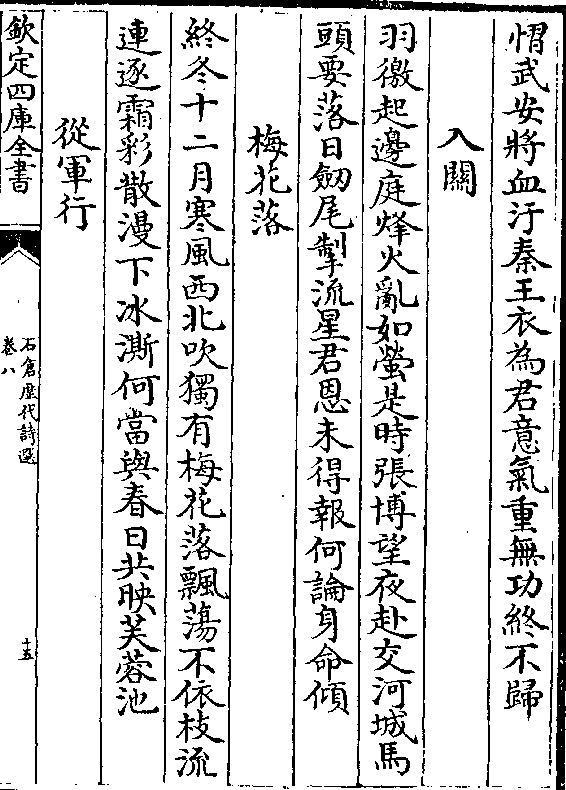 慴武安將血汙秦王衣為君意氣重無功終不歸
入關
羽檄起邊庭烽火亂如螢是時張博望夜赴交河城馬
頭要落日劒尾掣流星君恩未得報何論身命傾
梅花落
終冬十二月寒風西北吹獨有梅花落飄蕩不依枝流
連逐霜彩散漫下冰澌何當與春日共映芙蓉池
從軍行
欽定四庫全書
石倉歴代詩選
卷八
十五